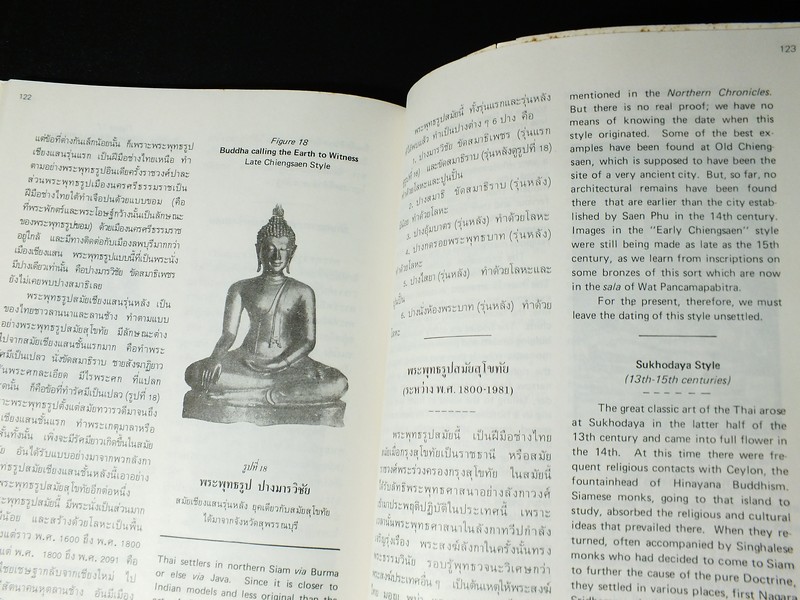 122
แต่ข้อที่ต่างกันเล็กน้อยนั้น ก็เพราะพระพุทธรูป
เชียงแสนรุ่นแรก เป็นฝีมือช่างไทยเหนือ ทำ
ตามอย่างพระพุทธรูปอินเดียครั้งราชวงศ์ปาละ
ส่วนพระพุทธรูปเมืองนครศรีธรรมราชเป็น
ฝีมือช่างไทยใต้ทำเจือปนด้วยแบบขอม (คือ
ที่พระพักตร์และพระโอษฐ์กว้างนั้นเป็นลักษณะ
ของพระพุทธรูปขอม) ด้วยเมืองนครศรีธรรมราช
อยู่ใกล้ และมีทางติดต่อกับเมืองลพบุรีมากกว่า
เมืองเชียงแสน พระพุทธรูปแบบนี้ที่เป็นพระนั่ง
มีปางเดียวเท่านั้น คือปางมารวิชัย ขัดสมาธิเพชร
ยังไม่เคยพบปางสมาธิเลย
พระพุทธรูปสมัยเชียงแสนรุ่นหลัง เป็น
ของไทยชาวลานนาและลานช้าง ทำตามแบบ
อย่างพระพุทธรูปสมัยสุโขทัย มีลักษณะต่าง
ไปจากสมัยเชียงแสนชั้นแรกมาก คือทำพระ
เป็นเปลว นั่งขัดสมาธิราบ ชายสังฆาฏิยาว
พระศกละเอียด มีไรพระศก ที่แปลก
นั้น ก็คือข้อที่ทำรัศมีเป็นเปลว (รูปที่ 18)
พระพุทธรูปตั้งแต่สมัยทวารวดีมาจนถึง
เชียงแสนชั้นแรก ทำพระเกตุมาลาหรือ
ทั้งนั้น เพิ่งจะมีรัศมียาวเกิดขึ้นในสมัย
อันได้รับแบบอย่างมาจากพวกลังกา
พระพุทธรูปสมัยเชียงแสนชั้นหลังนี้เอาอย่าง
พระพุทธรูปสมัยสุโขทัยอีกต่อหนึ่ง
มีพระนั่งเป็นส่วนมาก
มีน้อย และสร้างด้วยโลหะเป็นพื้น
ราว พ.ศ. 1600 ถึง พ.ศ. 1800
แต่ พ.ศ. 1800 ถึง พ.ศ. 2091 คือ
ไชยเชษฐากลับจากเชียงใหม่ ไป
Figure 18
Buddha calling the Earth to Witness
Late Chiengsaen Style
รูปที่ 18
พระพุทธรูป ปางมารวิชัย
สมัยเชียงแสนรุ่นหลัง ยุคเดียวกับสมัยสุโขทัย
ได้มาจากจังหวัดสุพรรณบุรี
Thai settlers in northern Siam via Burma
or else via Java. Since it is closer to
Indian models and less original than the
123
พระพุทธรูปสมัยนี้ ทั้งรุ่นแรกและรุ่นหลัง
แล้ว ทำเป็นปางต่าง ๆ 6 ปาง คือ
1. ปางมารวิชัย ขัดสมาธิเพชร (รุ่นแรก
และขัดสมาธิราบ (รุ่นหลังดูรูปที่ 18)
ทำด้วยโลหะและปูนปั้น
2. ปางสมาธิ ขัดสมาธิราบ (รุ่นหลัง)
ทำด้วยโลหะ
3. ปางอุ้มบาตร (รุ่นหลัง) ทำด้วยโลหะ
4. ปางกดรอยพระพุทธบาท (รุ่นหลัง)
ทำด้วยโลหะ
5. ปางไสยา (รุ่นหลัง) ทำด้วยโลหะและ
6. ปางนั่งห้อยพระบาท (รุ่นหลัง) ทำด้วย
โลหะ
พระพุทธรูปสมัยสุโขทัย
(ระหว่าง พ.ศ. 1800-1981)
พระพุทธรูปสมัยนี้ เป็นฝีมือช่างไทย
เมื่อกรุงสุโขทัยเป็นราชธานี หรือสมัย
พระร่วงครองกรุงสุโขทัย ในสมัยนี้
ได้รับลัทธิพระพุทธศาสนาอย่างลังกาวงศ์
มาประพฤติปฏิบัติในประเทศนี้ เพราะ
นั้นพระพุทธศาสนาในลังกาทวีปกำลัง
รุ่งเรือง พระสงฆ์ลังกาในครั้งนั้นทรง
พระธรรมวินัย รอบรู้พุทธวจนะวิเศษกว่า
พระสงฆ์ประเทศอื่น ๆ เป็นต้นเหตุให้พระสงฆ์
mentioned in the Northern Chronicles.
But there is no real proof; we have no
means of knowing the date when this
style originated. Some of the best ex-
amples have been found at Old Chieng-
saen, which is supposed to have been the
site of a very ancient city. But, so far, no
architectural remains have been found
there that are earlier than the city estab-
lished by Saen Phu in the 14th century.
Images in the "Early Chiengsaen" style
were still being made as late as the 15th
century, as we learn from inscriptions on
some bronzes of this sort which are now
in the sala of Wat Pancamapabitra.
For the present, therefore, we must
leave the dating of this style unsettled.
Sukhodaya Style
(13th-15th centuries)
The great classic art of the Thai arose
at Sukhodaya in the latter half of the
13th century and came into full flower in
the 14th. At this time there were fre-
quent religious contacts with Ceylon, the
fountainhead of Hinayana Buddhism.
Siamese monks, going to that island to
study, absorbed the religious and cultural
ideas that prevailed there. When they re-
turned, often accompanied by Singhalese
monks who had decided to come to Siam
to further the cause of the pure Doctrine,
they settled in various places, first Nagara